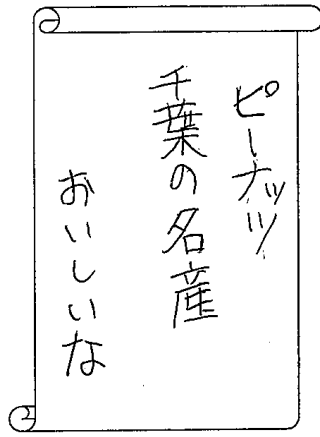 ピーナッツ
千葉の名産
おいしいな